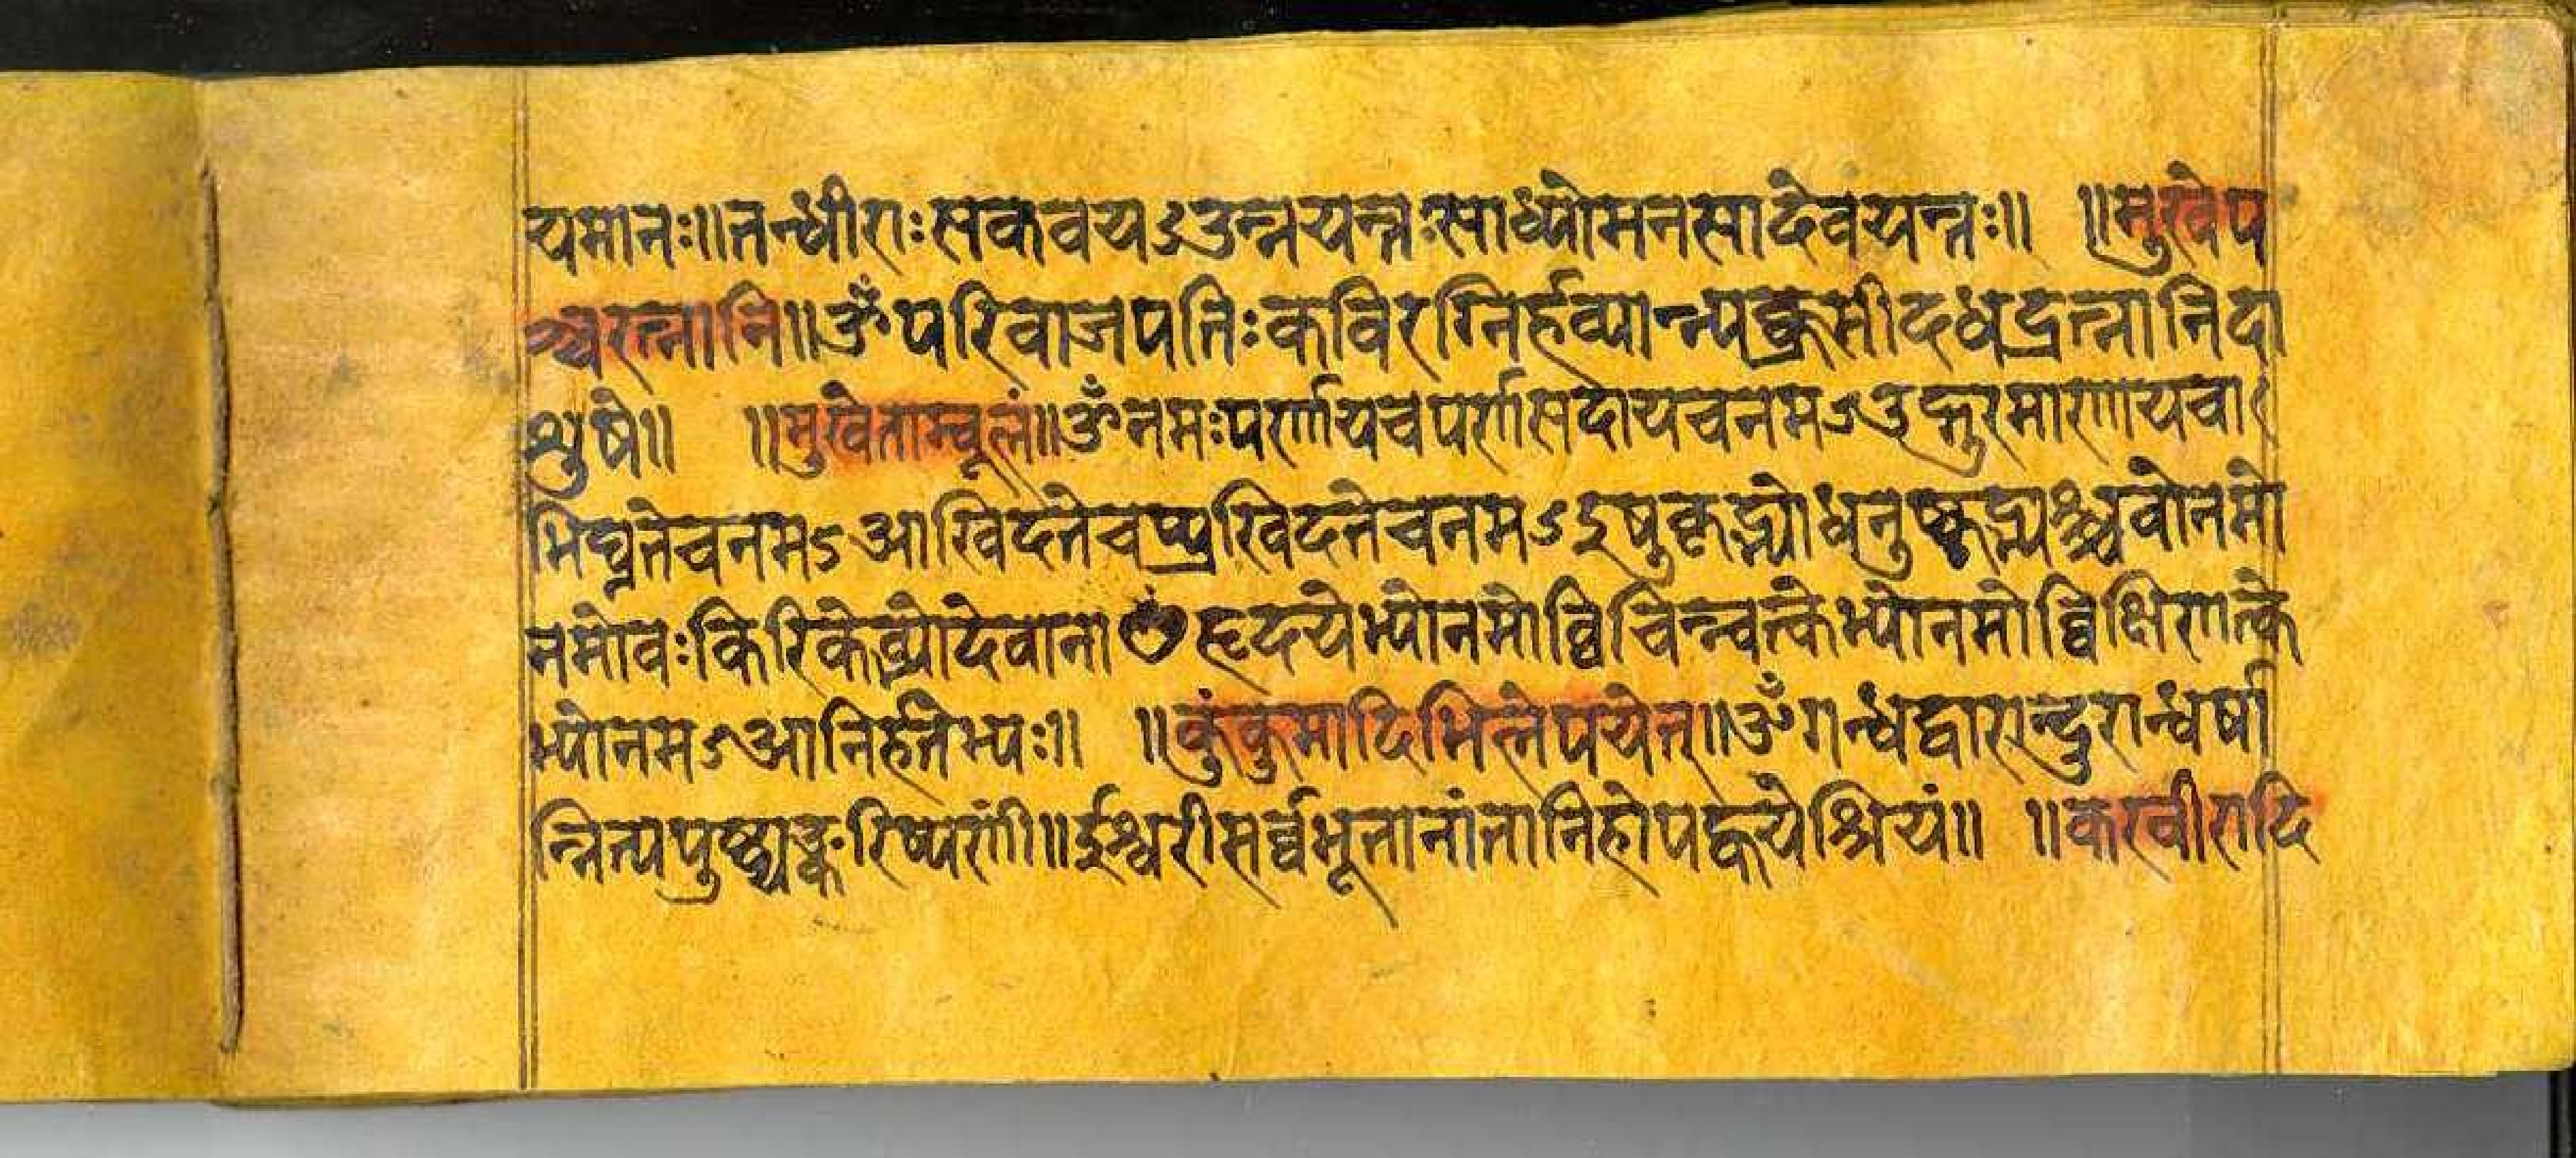 यमानः॥तन्धीराःसकवयऽउन्नयन्तःसाध्योमनसादेवयन्तः॥ ॥मुखेप
ञ्चरत्नानि॥ॐपरिवाजपतिःकविरग्निर्हव्यान्यक्क्रमीदधद्रत्नानिदा
शुषे॥ ॥मुखेताम्बूलं॥ॐनमःपर्णायचपर्णसदायचनमऽउद्गुरमाणायचा
भिघ्नतेचनमऽआखिदतेचप्प्रखिदतेचनमऽइषुकृद्भ्योधनुष्कृद्भ्यश्श्चवोनमो
नमोवःकिरिकेब्भ्योदेवानाᳪहृदयेभ्योनमोव्विचिन्वत्केभ्योनमोव्विक्षिणत्के
भ्योनमऽआनिर्हतेभ्यः॥ ॥कुंकुमादिभिल्लेपयेत्॥ॐगन्धद्वारान्दुरान्धर्षा
न्नित्यपुष्ट्यङ्करिष्यरणीं॥ईश्वरीसर्व्वभूतानांतानिहोपह्वयेश्रियं॥ ॥करवीरादि